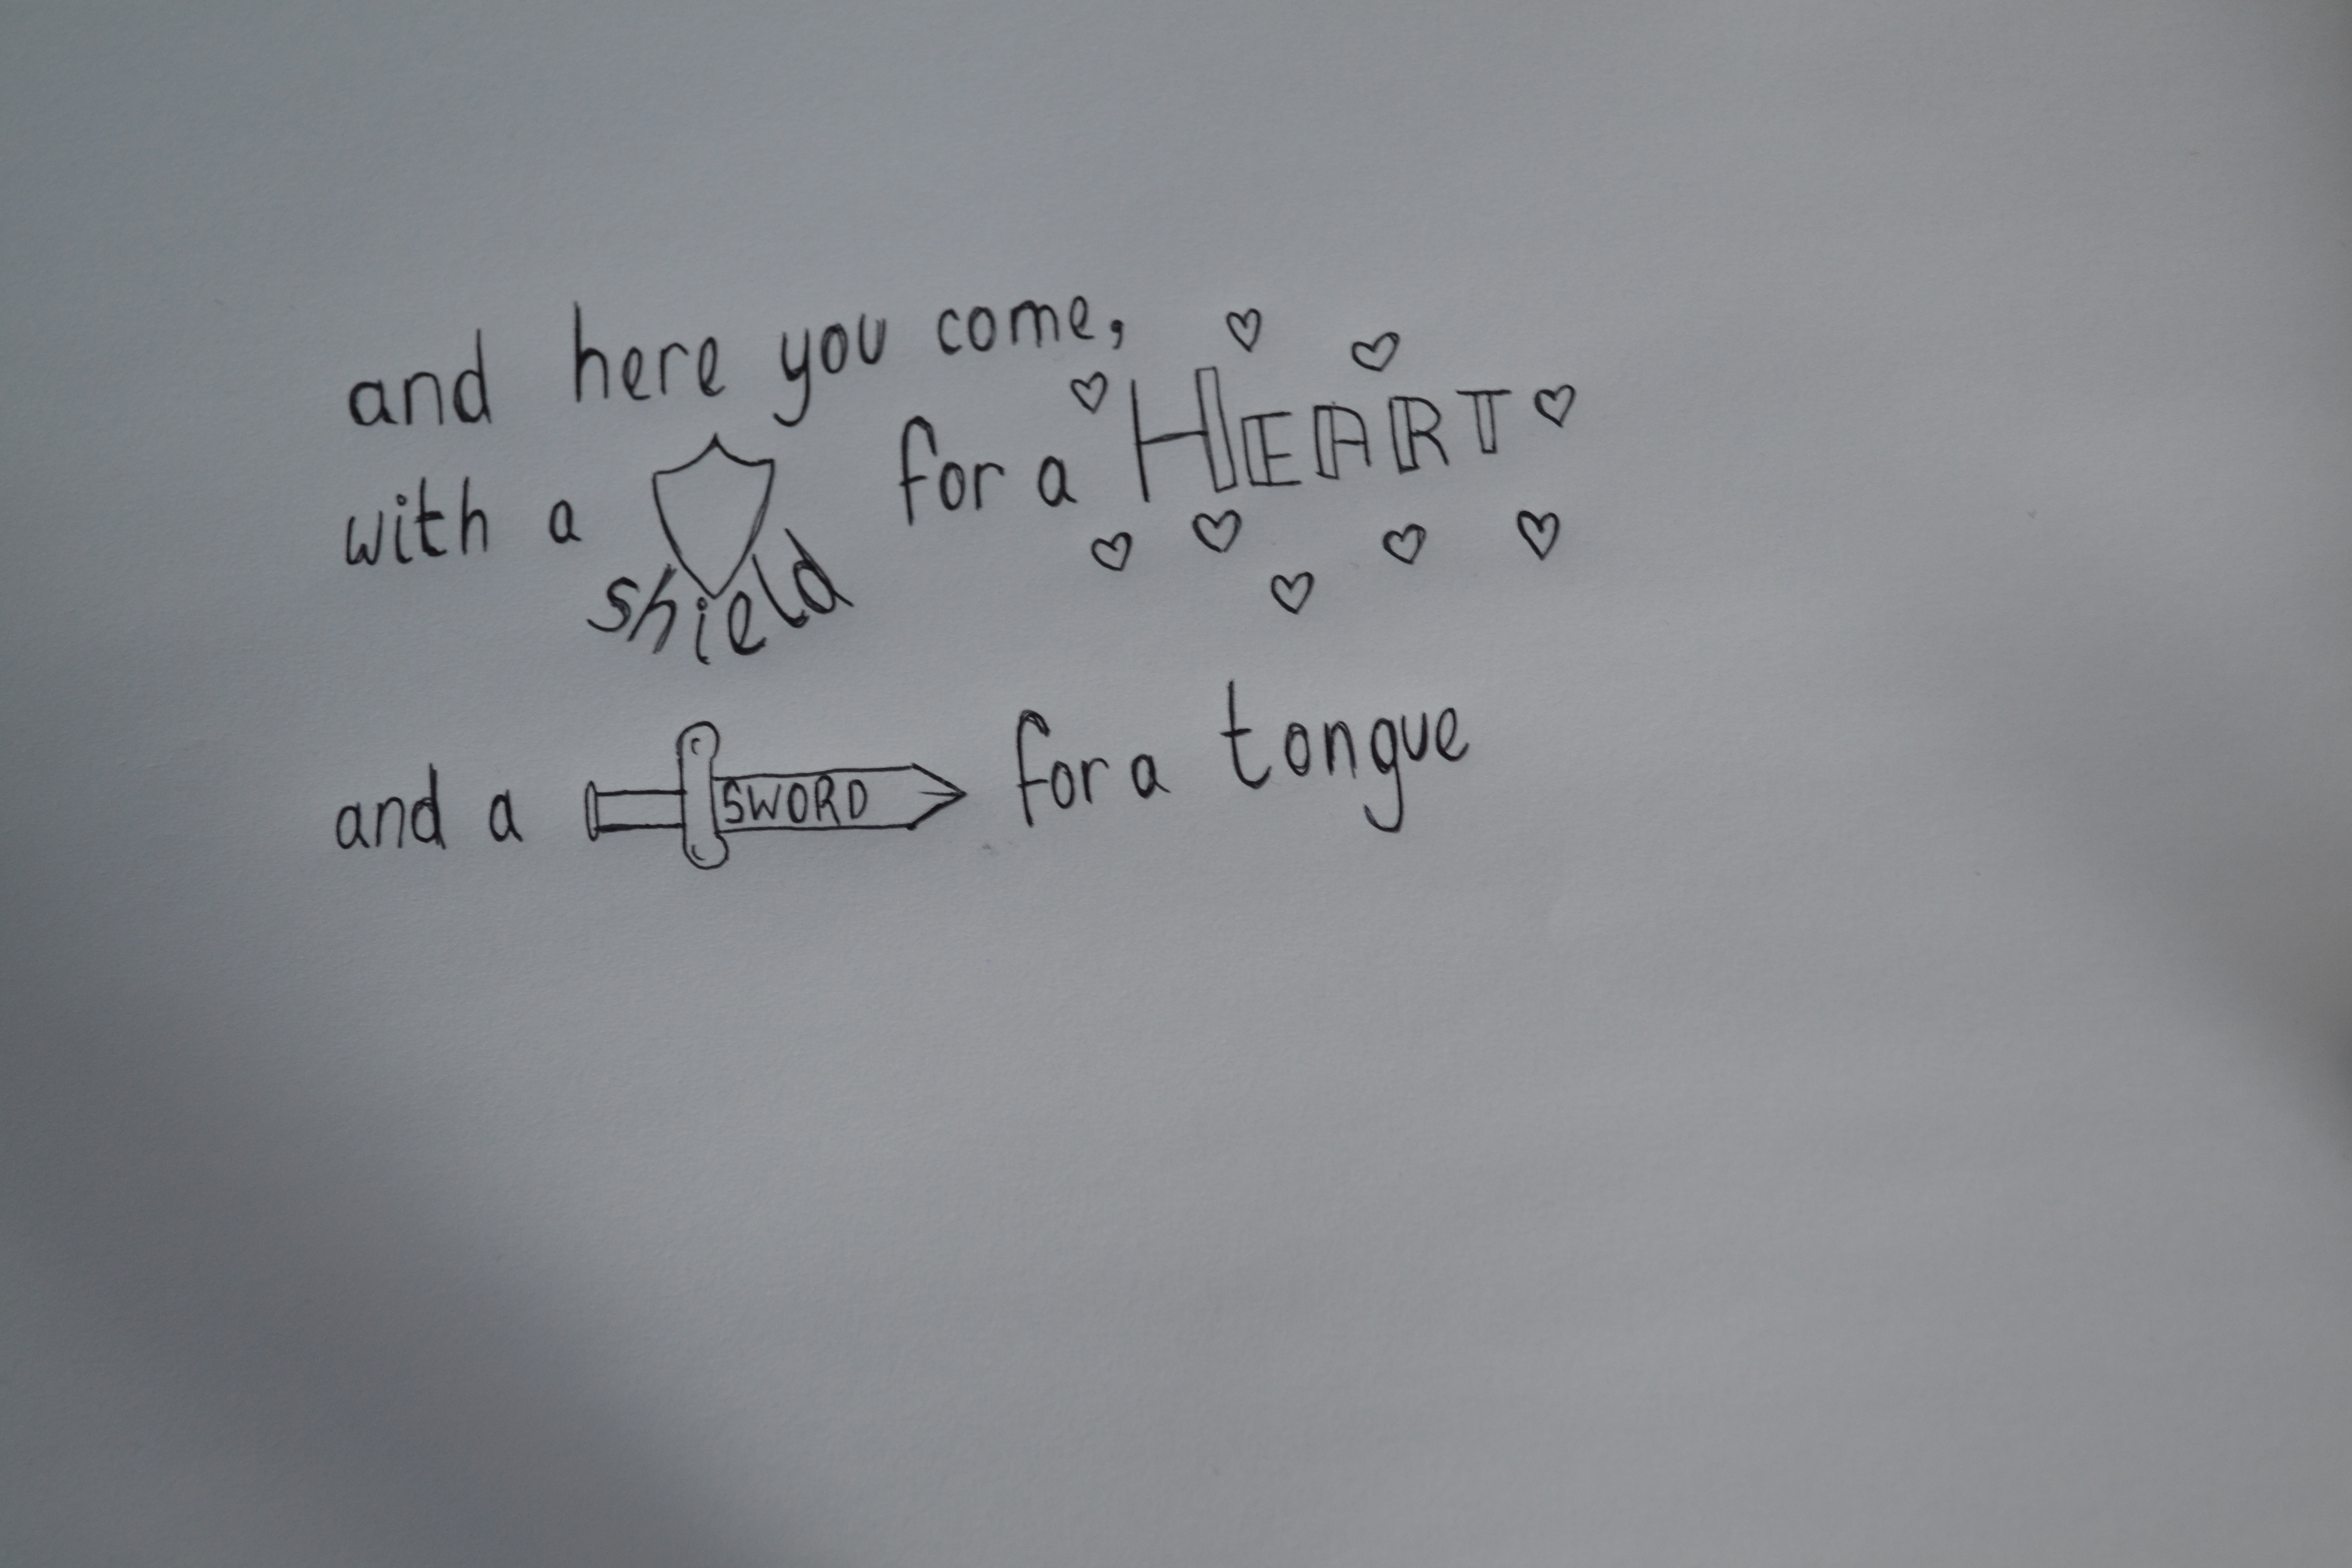 and here you come,
with a shield for a HEART
and a SWORD for a tongue